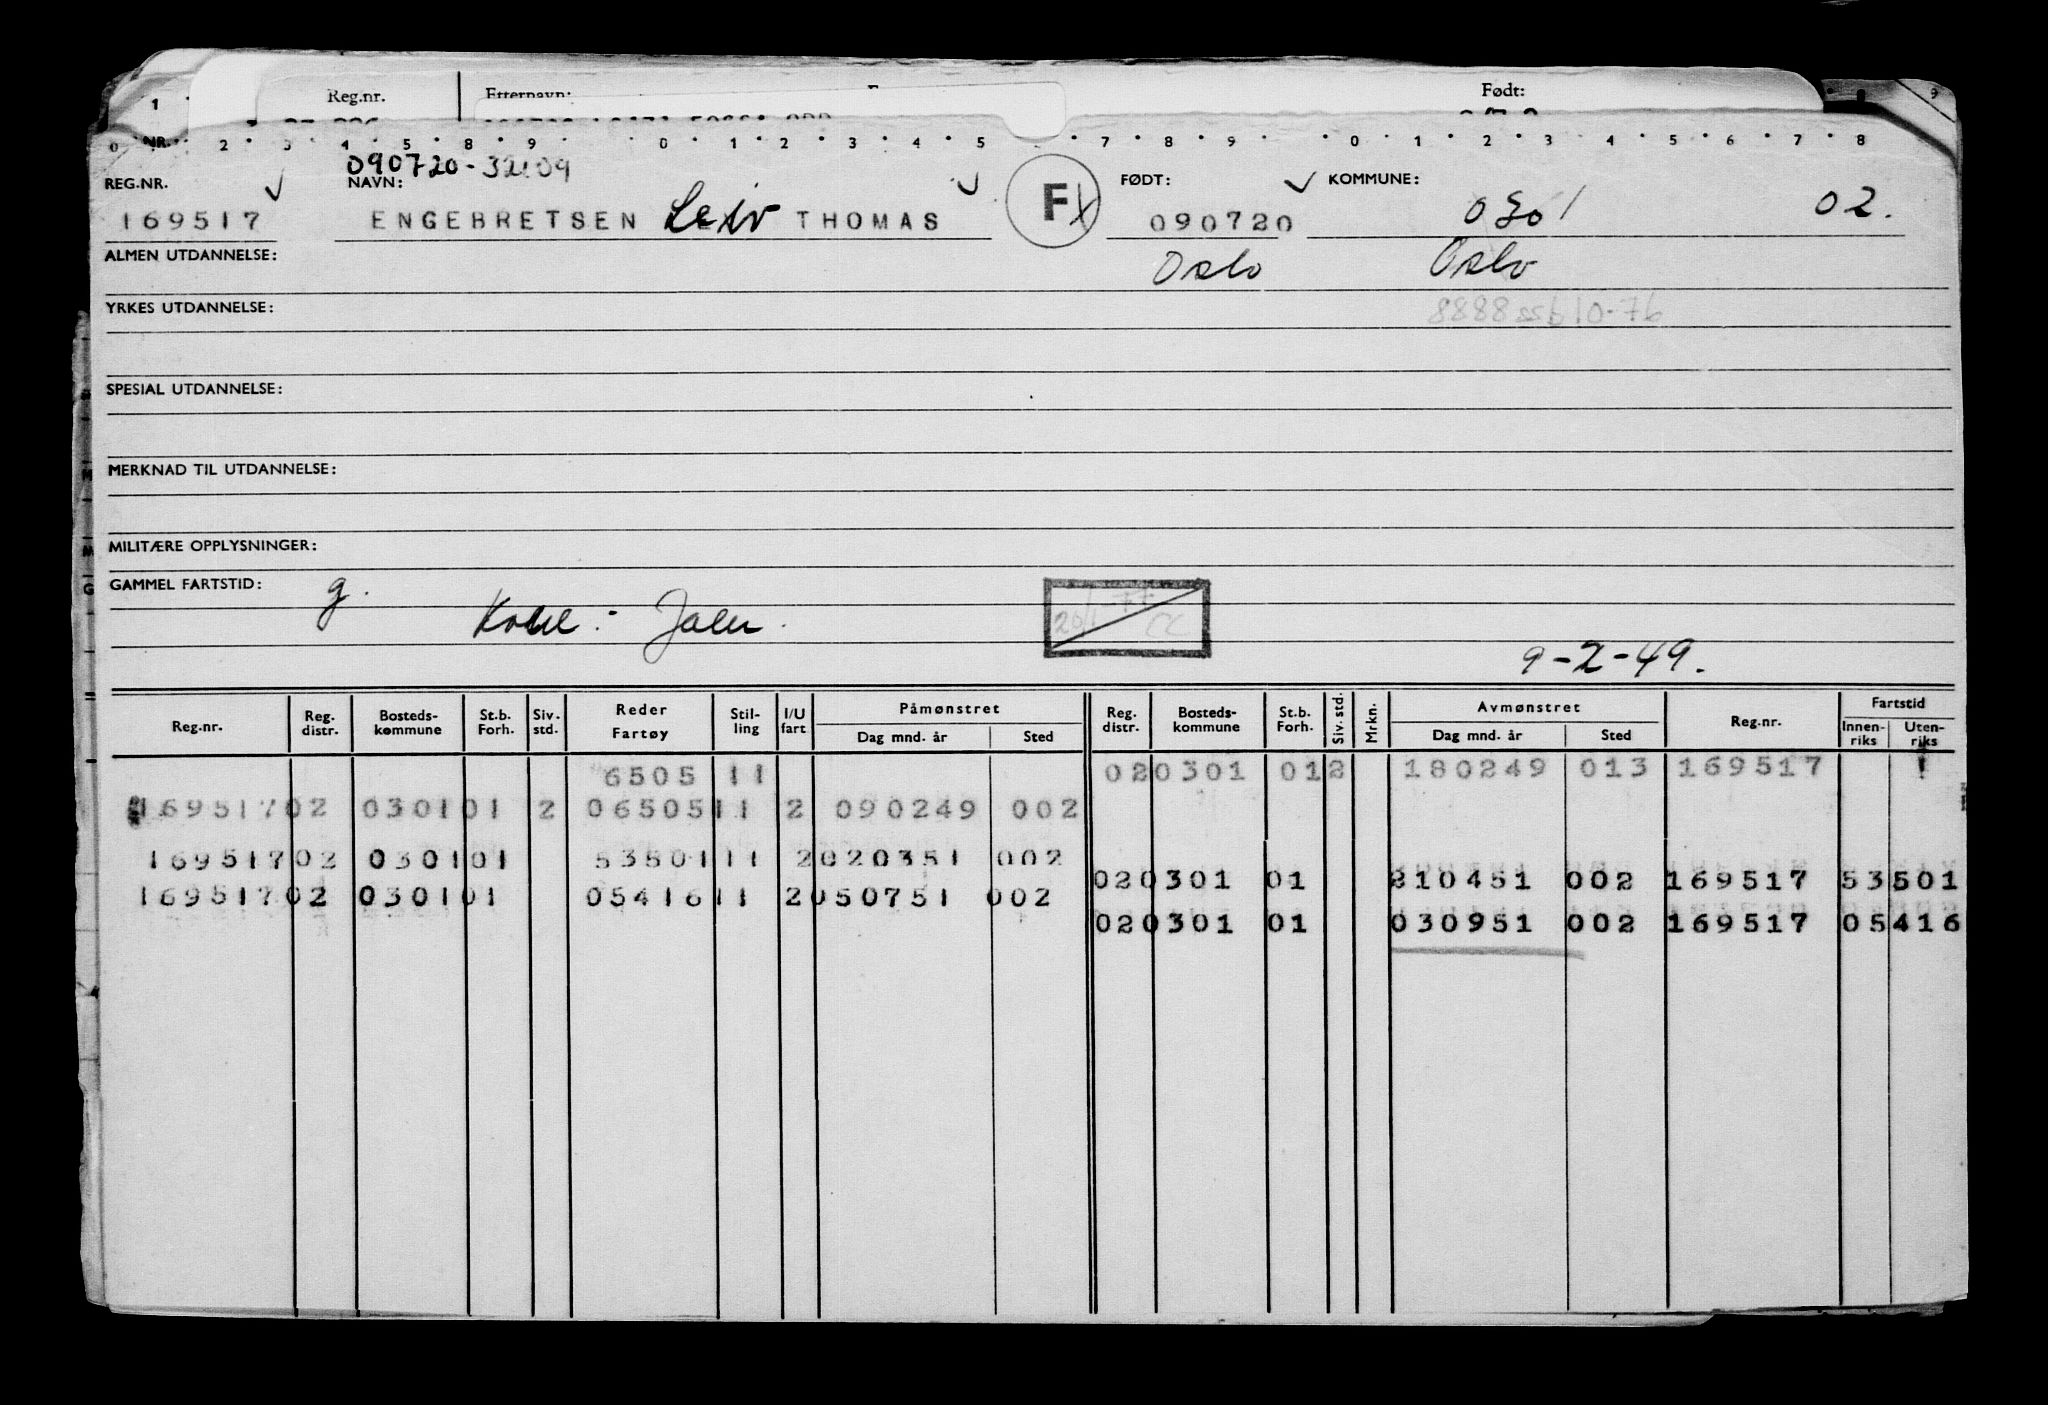 1 Reg.nr. Etternavn: Født: 9
NR. 2 3 4 5 8 9 0 1 2 3 4 5 7 8 9 0 1 2 3 4 5 6 7 8
090720-32109
REG.NR. NAVN: FØDT: KOMMUNE:
169517 ENGEBRETSEN Leiv THOMAS F 090720 0301 02.
ALMEN UTDANNELSE: Oslo Oslo
YRKES UTDANNELSE:
SPESIAL UTDANNELSE:
MERKNAD TIL UTDANNELSE:
MILITÆRE OPPLYSNINGER:
GAMMEL FARTSTID: g.
9-2-49.
Reg.nr. Reg. distr. Bosteds-kommune St.b. Forh. Siv. std. Reder Fartøy Stil-ling I/U fart Påmønstret Dag mnd. år Sted Reg. distr. Bosteds-kommune St.b. Forh. Siv. std. Mrkn. Avmønstret Dag mnd. år Sted Reg.nr. Fartstid Innen-riks Uten-riks
6505 11 020301 012 180249 013 169517 1
169517 02 0301 01 2 06505 11 2 090249 002
169517 02 0301 01 53501 11 2 020351 002
020301 01 210451 002 169517 53501
169517 02 0301 01 05416 11 2 050751 002
020301 01 030951 002 169517 05416